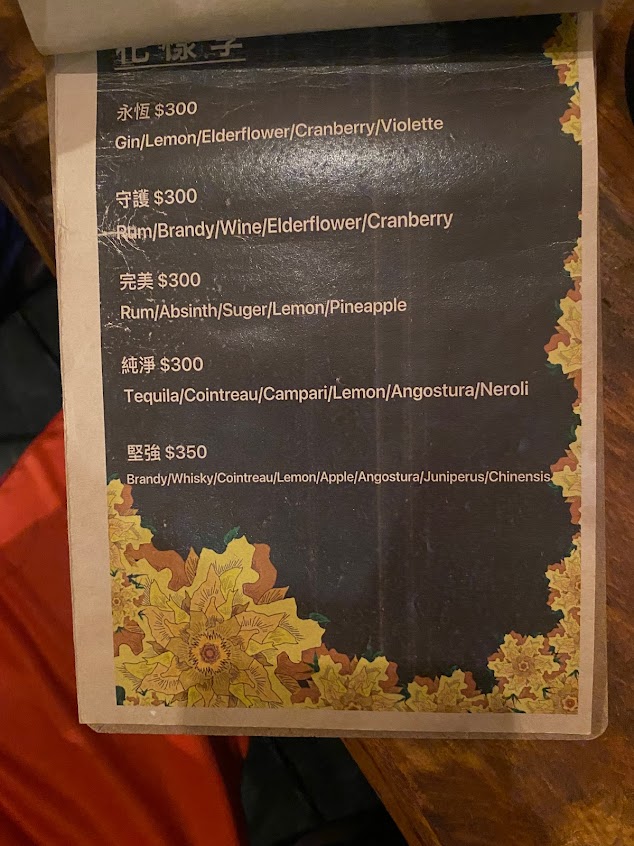 永恆 $300
Gin/Lemon/Elderflower/Cranberry/Violette
守護 $300
Rum/Brandy/Wine/Elderflower/Cranberry
完美 $300
Rum/Absinth/Suger/Lemon/Pineapple
純淨 $300
Tequila/Cointreau/Campari/Lemon/Angostura/Neroli
堅強 $350
Brandy/Whisky/Cointreau/Lemon/Apple/Angostura/Juniperus/Chinensis